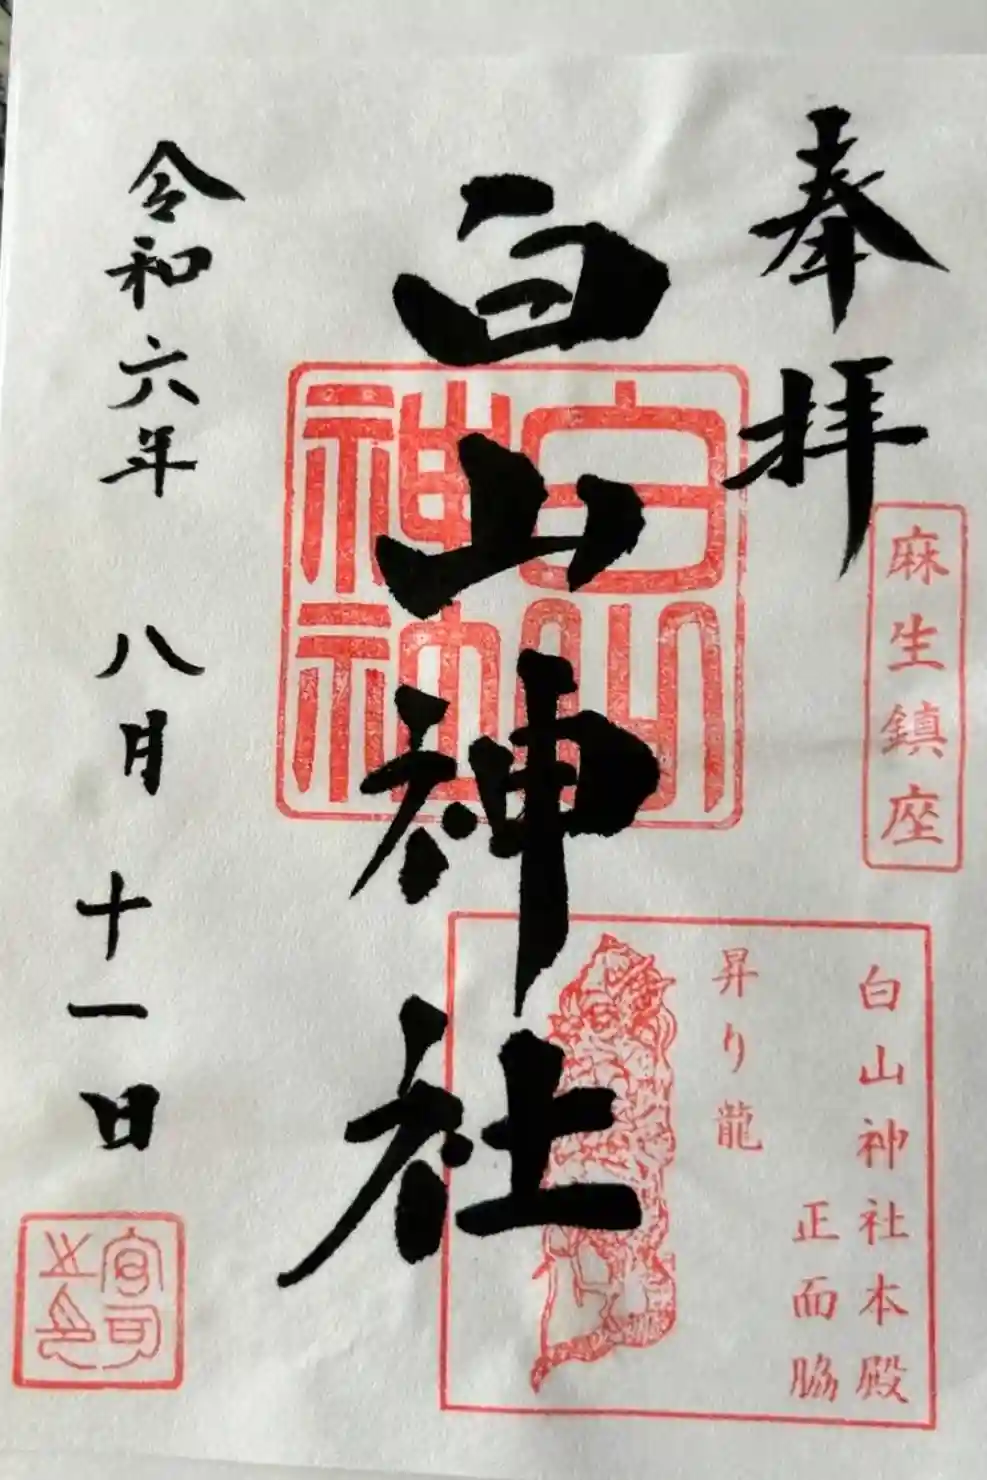 奉拝
麻生鎮座
白山神社本殿
正面脇
昇り龍
白山神社
白山
神社
令和六年 八月 十一日
宮司
之印